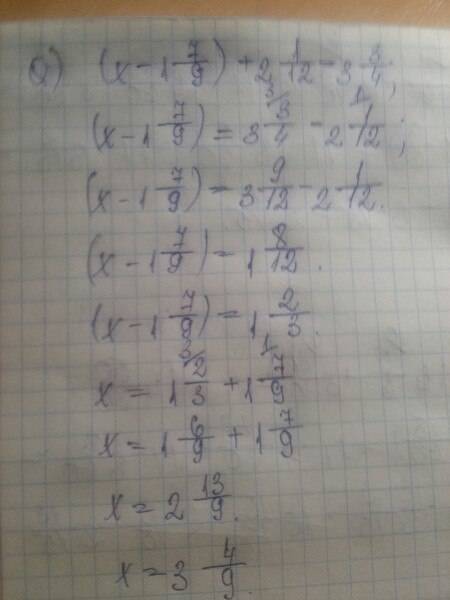 а) (x - 1 7/9) + 2 1/12 = 3 3/4;
(x - 1 7/9) = 3 3/4 - 2 1/12;
(x - 1 7/9) = 3 9/12 - 2 1/12.
(x - 1 7/9) = 1 8/12.
(x - 1 7/9) = 1 2/3.
x = 1 2/3 + 1 7/9
x = 1 6/9 + 1 7/9
x = 2 13/9.
x = 3 4/9.